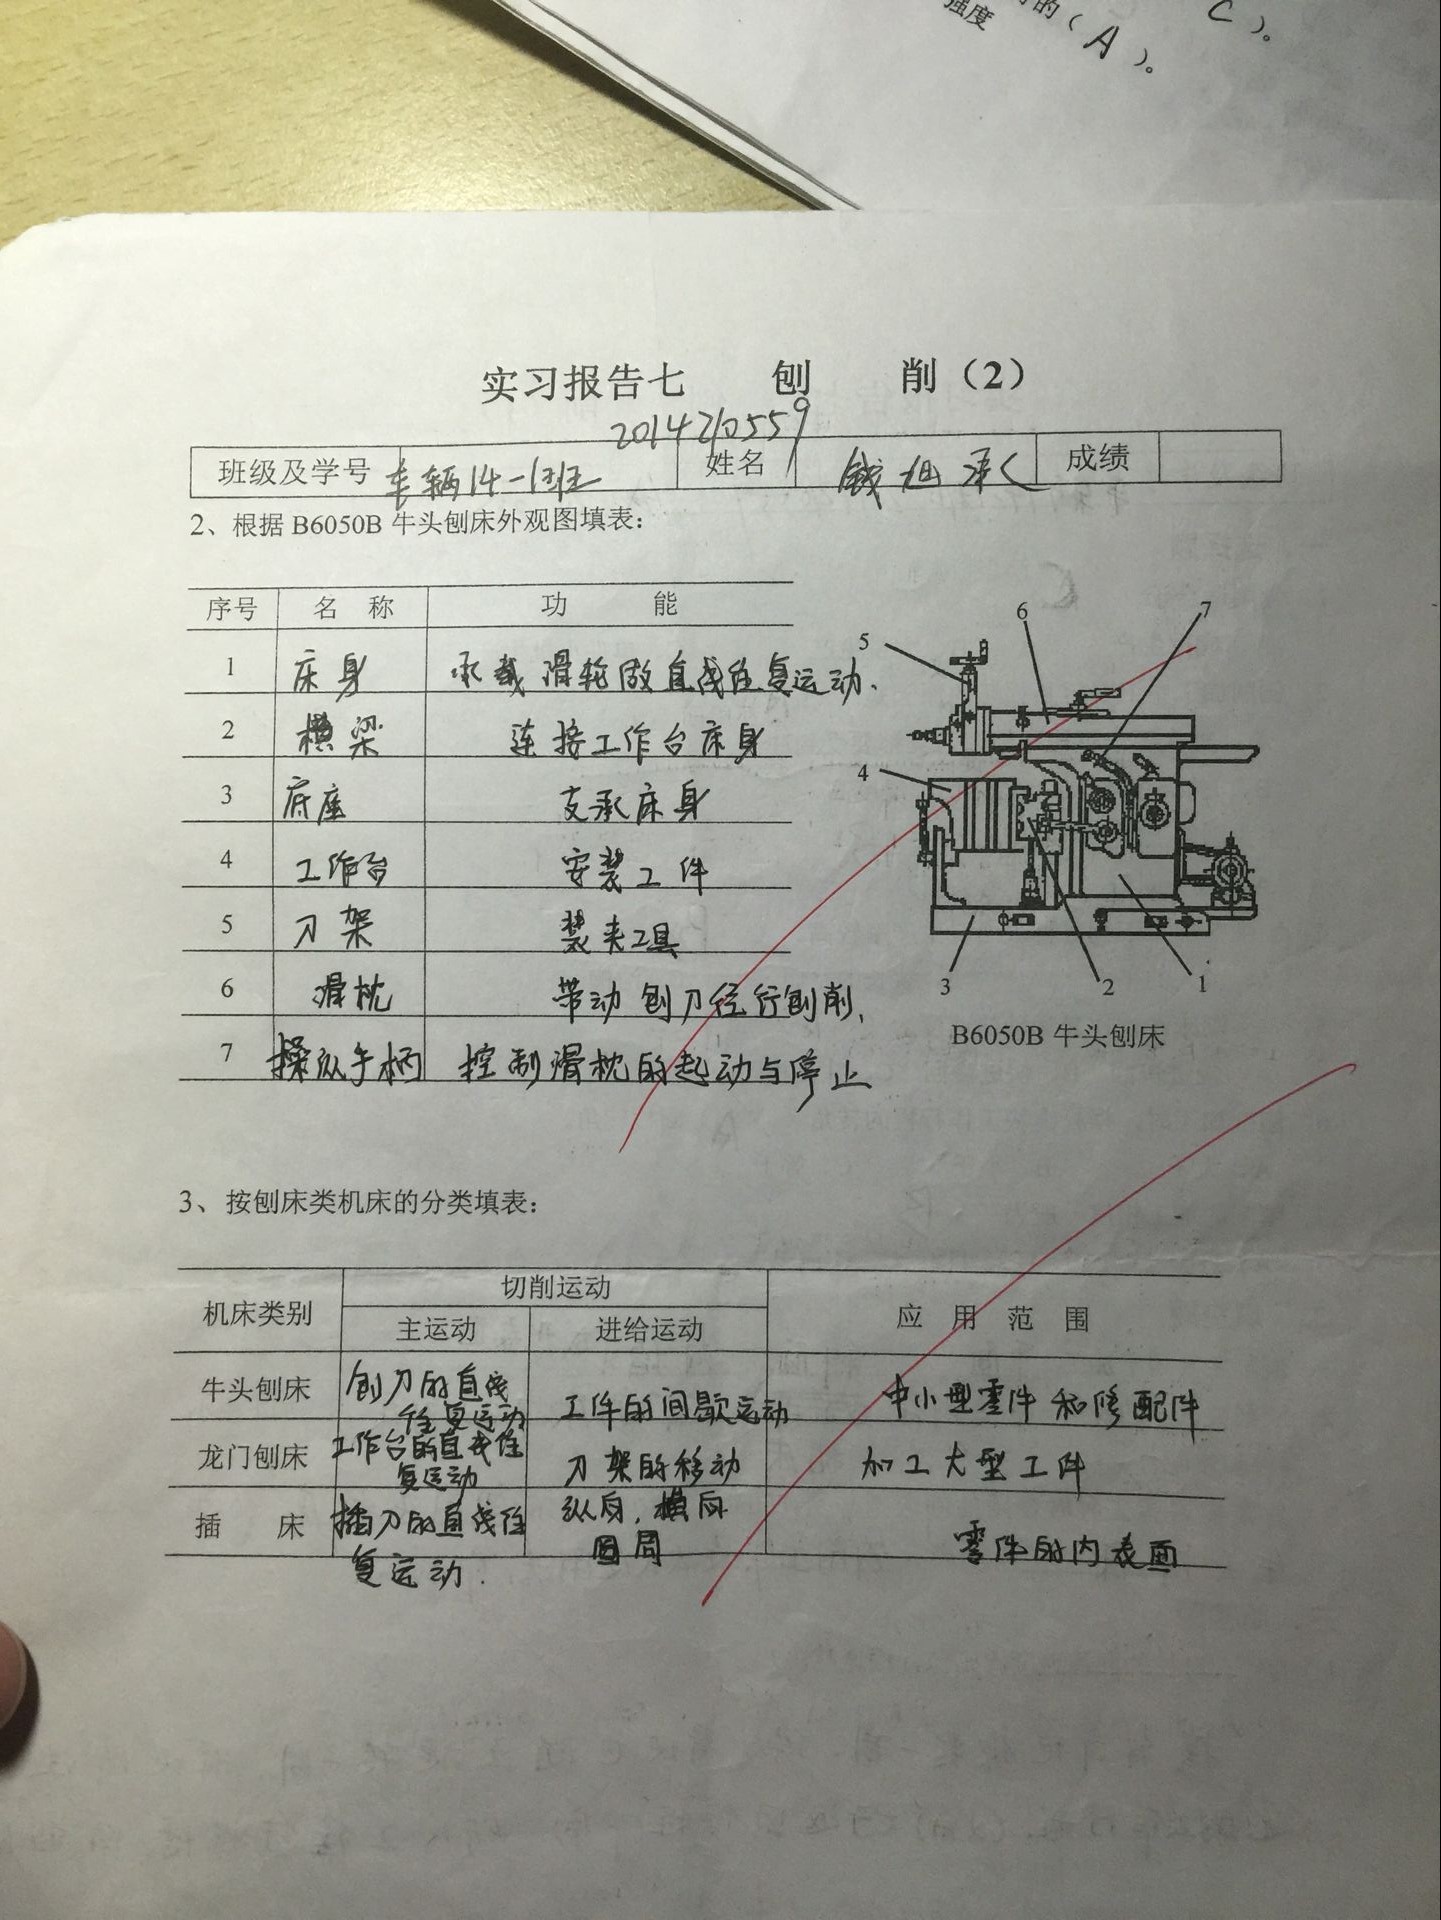 C )。
的 ( A )。
强度
实习报告七 刨 削（2）
2014210559
班级及学号 车辆14-1班 姓名 钱旭承 成绩
2、根据 B6050B 牛头刨床外观图填表：
序号 名 称 功 能
1 床身 承载滑轮做直线往复运动.
2 横梁 连接工作台床身
3 底座 支承床身
4 工作台 安装工件
5 刀架 装夹工具
6 滑枕 带动刨刀往行刨削.
7 操纵手柄 控制滑枕的起动与停止
5
6
7
4
3
2
1
B6050B 牛头刨床
3、按刨床类机床的分类填表：
机床类别 切削运动 应 用 范 围
主运动 进给运动
牛头刨床 刨刀的直线往复运动 工件的间歇运动 中小型零件和修配件
龙门刨床 工作台的直线往复运动 刀架的移动 加工大型工件
插 床 插刀的直线往复运动. 纵向,横向 圆周 零件的内表面